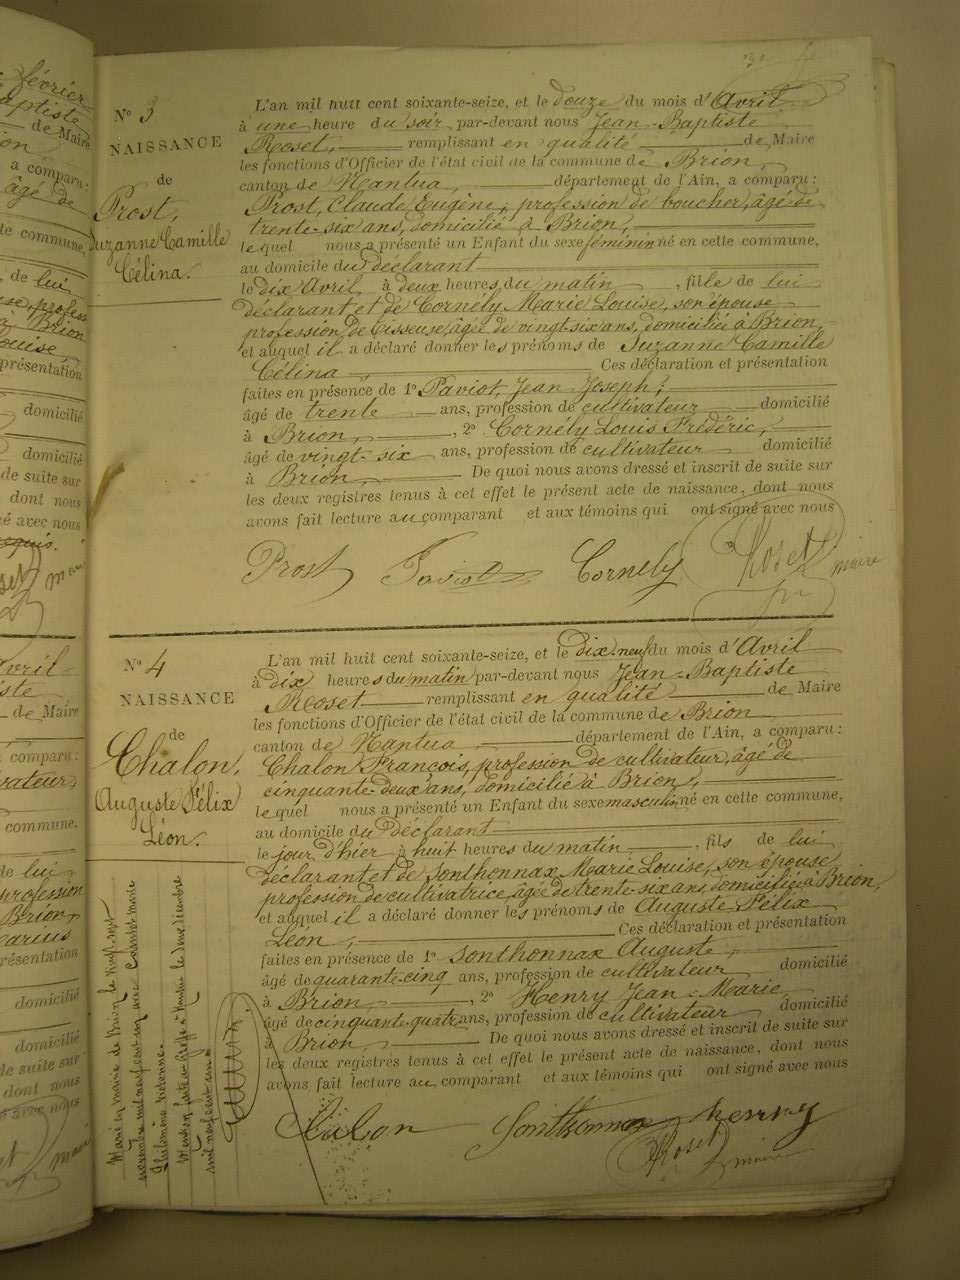 février
aptiste
de Maire
a comparu :
âgé de
commune,
de lui
profess
Brion
ouise,
présentation
domicilié
domicilié
de suite sur
dont nous
avec nous
N° 3
NAISSANCE
de
Prost,
Suzanne Camille
Célina.
L'an mil huit cent soixante-seize, et le douze du mois d'Avril
à une heure du soir par-devant nous Jean-Baptiste
Roset, remplissant en qualité de Maire
les fonctions d'Officier de l'état civil de la commune de Brion,
canton de Nantua, département de l'Ain, a comparu :
Prost, Claude Eugène, profession de boucher, âgé de
trente-six ans, domicilié à Brion,
lequel nous a présenté un Enfant du sexe féminin né en cette commune,
au domicile du déclarant
le dix Avril, à deux heures du matin, fille de lui
déclarant et de Cornély Marie Louise, son épouse
profession de Tisseuse, âgée de vingt six ans, domiciliée à Brion,
et auquel il a déclaré donner les prénoms de Suzanne Camille
Célina, Ces déclaration et présentation
faites en présence de 1° Paviot, Jean-Joseph,
âgé de trente ans, profession de cultivateur domicilié
à Brion, , 2° Cornély Louis Frédéric,
âgé de vingt-six ans, profession de cultivateur domicilié
à Brion, De quoi nous avons dressé et inscrit de suite sur
les deux registres tenus à cet effet le présent acte de naissance, dont nous
avons fait lecture au comparant et aux témoins qui ont signé avec nous
Prost Paviot Cornély Roset maire
N° 4
NAISSANCE
de
Chalon,
Auguste Félix
Léon.
L'an mil huit cent soixante-seize, et le dix-neuf du mois d'Avril
à dix heures du matin par-devant nous Jean-Baptiste
Roset remplissant en qualité de Maire
les fonctions d'Officier de l'état civil de la commune de Brion
canton de Nantua département de l'Ain, a comparu :
Chalon François, profession de cultivateur, âgé de
cinquante-deux ans, domicilié à Brion,
lequel nous a présenté un Enfant du sexe masculin né en cette commune,
au domicile du déclarant
le jour d'hier à huit heures du matin, fils de lui
déclarant et de Sonthonnax Marie Louise, son épouse
profession de cultivatrice, âgée de trente-six ans, domiciliée à Brion,
et auquel il a déclaré donner les prénoms de Auguste Félix
Léon, Ces déclaration et présentation
faites en présence de 1° Sonthonnax Auguste,
âgé de quarante-cinq ans, profession de cultivateur domicilié
à Brion, 2° Henry Jean-Marie
âgé de cinquante-quatre ans, profession de cultivateur domicilié
à Brion, De quoi nous avons dressé et inscrit de suite sur
les deux registres tenus à cet effet le présent acte de naissance, dont nous
avons fait lecture au comparant et aux témoins qui ont signé avec nous
Chalon Sonthonnax henry
Roset maire
Marié en mairie de Brion le vingt sept
novembre mil neuf cent un avec marie
Philomène
Mention faite au Greffe à Nantua le deux décembre
mil neuf cent un